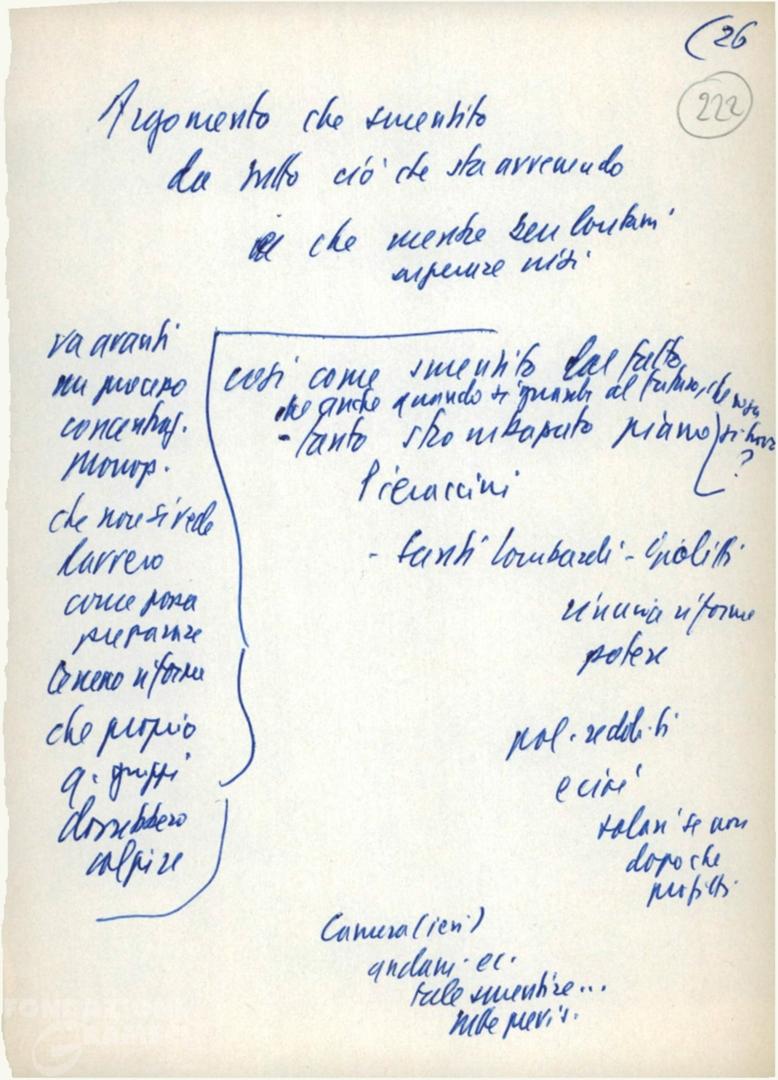 (26
222
Argomento che smentito
da tutto ciò che sta avvenendo
è che mentre ben lontani
superare crisi
va avanti
un processo
concentraz.
monop.
che non si vede
davvero
come possa
preparare
terreno riforme
che proprio
q. gruppi
dovrebbero
colpire
così come smentito dal fatto
che anche quando si guarda al futuro, che cosa
si trova
?
- tanto strombazzato piano
Pieraccini
- Santi Lombardi - Giolitti
rinuncia riforme
potere
pol. redditi
e cioè
salari se non
dopo che
profitti
Camera (ieri)
andam. ec.
smentire...
nelle previs.
FONDAZIONE
GRAMSCI